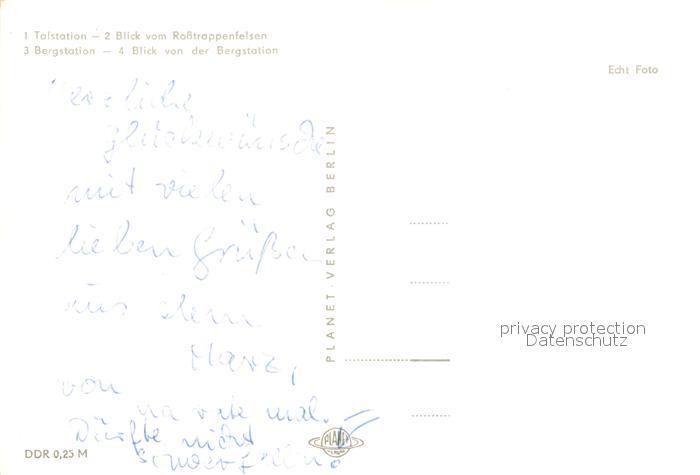 1 Talstation — 2 Blick vom Roßtrappenfelsen
3 Bergstation — 4 Blick von der Bergstation
Echt Foto
Herzliche
Glückwünsche
mit vielen
lieben Grüßen
aus dem
Harz,
von
na rate mal.
Dürfte nicht
schwerfallen!
PLANET-VERLAG BERLIN
privacy protection
Datenschutz
PLANET
DDR 0,25 M